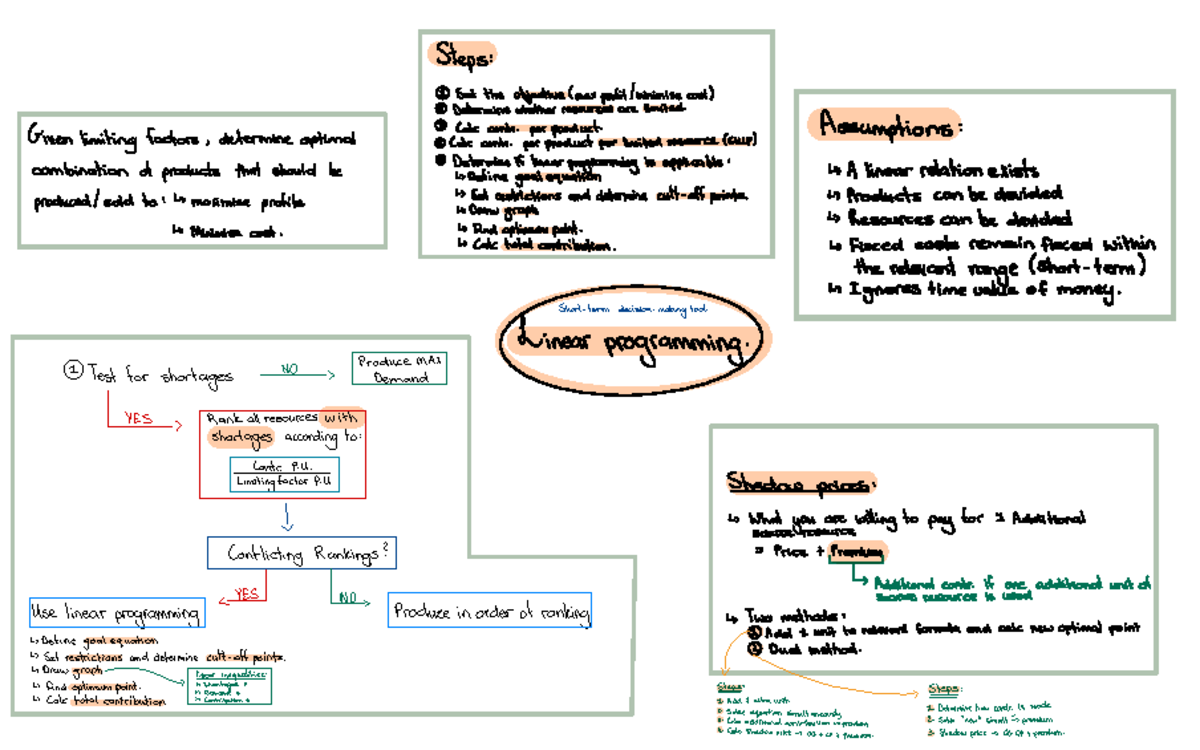 Given limiting factors, determine optimal
combination of products that should be
produced/sold to: ↳ maximise profits
↳ Minimise cost.
Steps:
① Set the objective (max profit/minimise cost)
② Determine whether resources are limited
③ Calc contr. per product.
④ Calc contr. per product per limited resource
⑤ Determine if linear programming is applicable:
↳ Define goal equation
↳ Set restrictions and determine cutt-off points.
↳ Draw graph
↳ Find optimum point.
↳ Calc total contribution.
Assumptions:
↳ A linear relation exists
↳ Products can be devided
↳ Resources can be devided
↳ Fixed costs remain fixed within
the relevant range (short-term)
↳ Ignores time value of money.
Short-term decision-making tool
Linear programming.
① Test for shortages
NO
Produce MAX
Demand
YES
Rank all resources with
shortages according to:
Contr P.U.
Limiting factor P.U
Conflicting Rankings?
YES
NO
Use linear programming
Produce in order of ranking
↳ Define goal equation
↳ Set restrictions and determine cutt-off points.
↳ Draw graph
↳ Find optimum point.
↳ Calc total contribution
Shadow prices:
↳ What you are willing to pay for 1 Additional
scarce resource
= Price + Premium
↳ Additional contr. if one additional unit of
scarce resource is used
↳ Two methods:
① Add 1 unit to relevant formula and calc new optimal point
② Dual method.
Steps:
1. Add 1 extra unit
2. Solve equation simultaneously
3. Calc additional contribution = premium
4. Calc Shadow price →
Steps:
1. Determine how contr. is made
2. Solve "new" simult → premium
3. Shadow price →